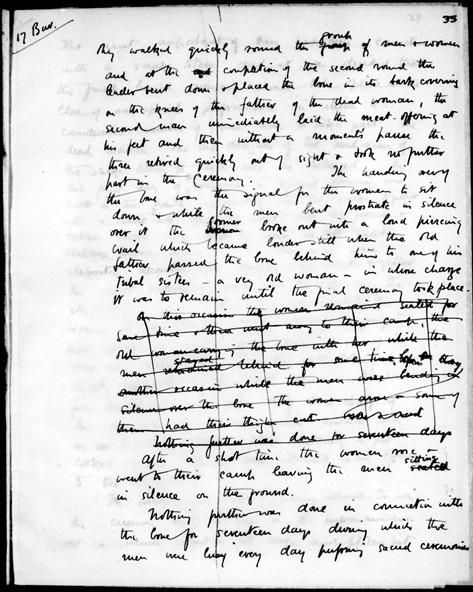 35
17 Bur.
They walked quickly round the group group of men & women
and at the completion of the second round the
leader bent down & placed the bone in its bark covering
on the knees of the father of the dead woman, the
second man immediately laid the meat offering at
his feet and then without a moments pause the
three retired quickly out of sight & took no further
part in the ceremony. The handing over of
the bone was the signal for the women to sit
down & while the men bent prostrate in silence
over it the former women broke out into a loud piercing
wail which became louder still when the old
father passed the bone behind him to one of his
tribal sisters – a very old woman – in whose charge
it was to remain until the final ceremony took place.
On this occasion the women remained seated for
some time & then went away to their camp, the
old woman carrying the bone with her while the
men stayed remained behind for some time
another occasion while the men were bending in
silence over the bone the women arose & some of
them had their thighs cut
Nothing further was done for seventeen days
After a short time the women rose
went to their camp leaving the men sitting seated
in silence on the ground.
Nothing further was done in connection with
the bone for seventeen days during which the
men were busy every day performing sacred ceremonies